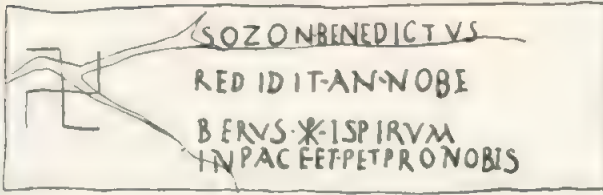 SOZONBENEDICTVS
REDIDIT·AN·NOBE
BERVS·☧·ISPIRVM
INPACEET·PETPRONOBIS